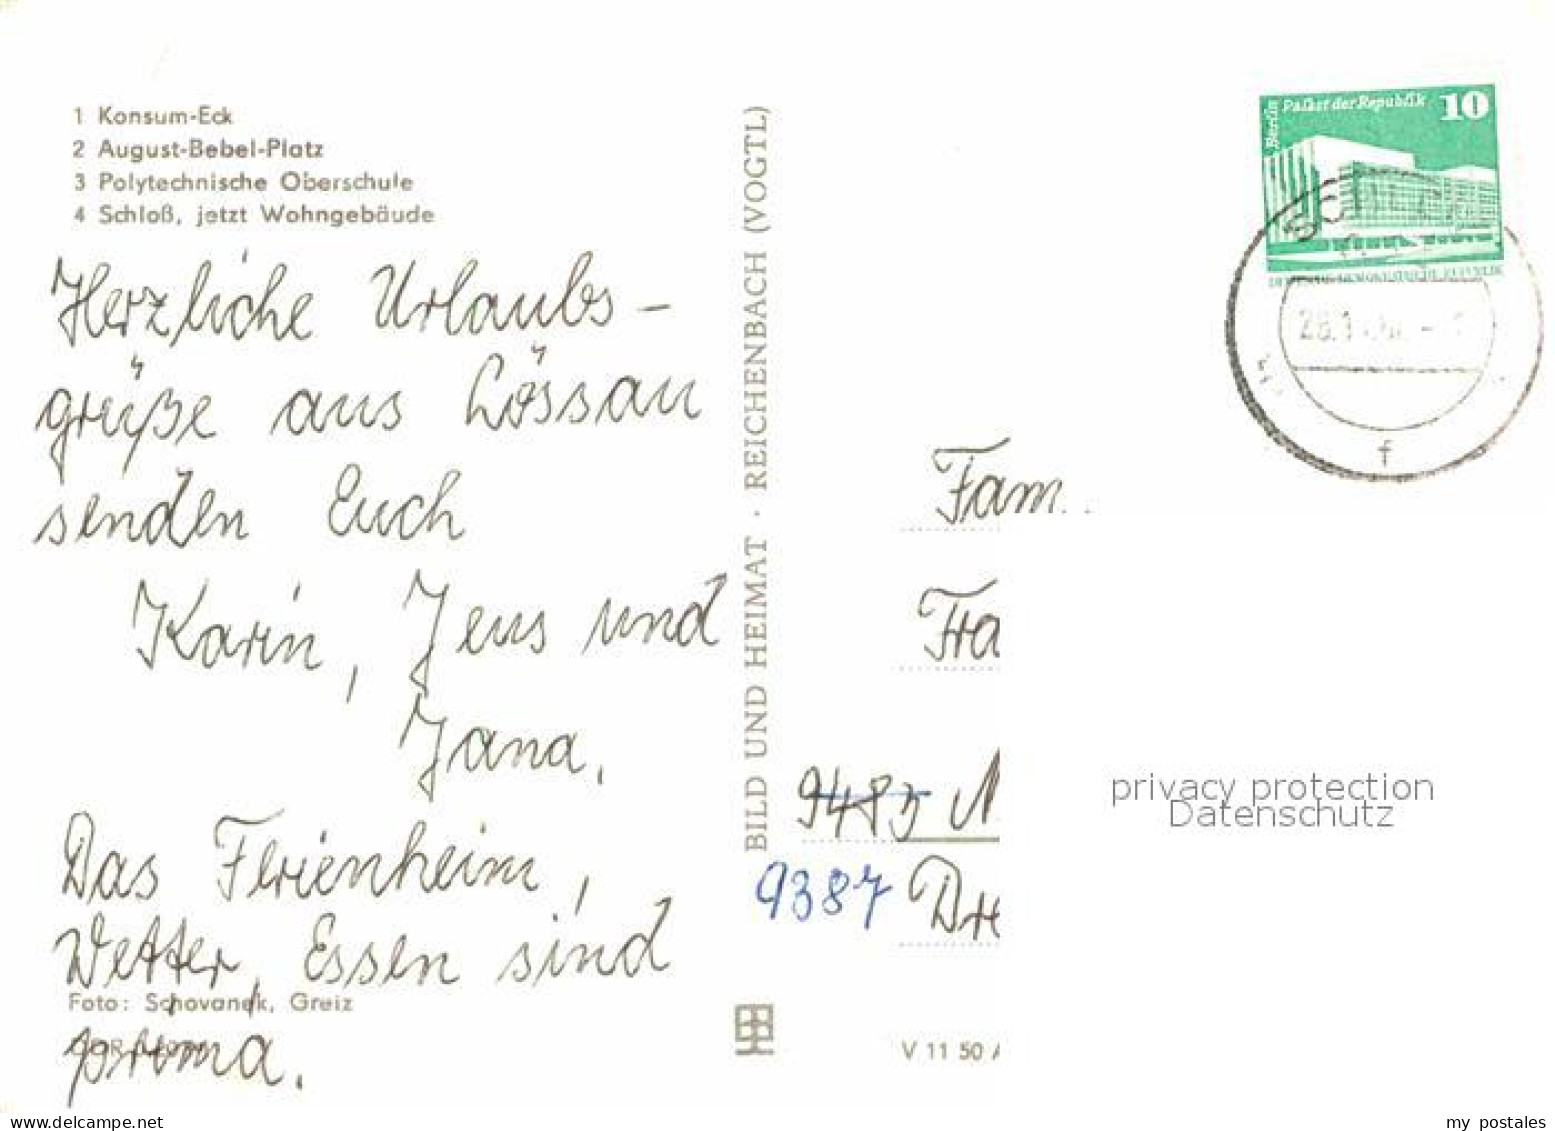 1 Konsum-Eck
2 August-Bebel-Platz
3 Polytechnische Oberschule
4 Schloß, jetzt Wohngebäude
Herzliche Urlaubs-
grüße aus Lössau
senden Euch
Karin, Jens und
Jana.
Das Ferienheim,
Wetter, Essen sind
prima.
Foto: Schovanek, Greiz
BILD UND HEIMAT · REICHENBACH (VOGTL)
Berlin
Palast der Republik 10
f
Fam.
9485
9387
V 11 50
privacy protection
Datenschutz
my postales